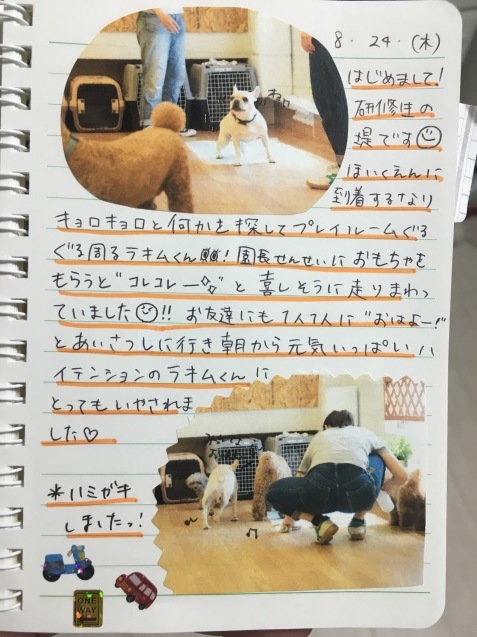 8. 24. (木)
はじめまして!
研修生の
堤です
ほいくえんに
到着するなり
キョロキョロと何かを探してプレイルームぐる
ぐる周るラキムくん!!! 園長せんせいにおもちゃを
もらうと"コレコレー"と喜しそうに走りまわっ
ていました!! お友達にも1人1人に"おはよー!"
とあいさつしに行き朝から元気いっぱいハ
イテンションのラキムくんに
とってもいやされま
した♡
*ハミガキ
しましたっ!
ONE
WAY